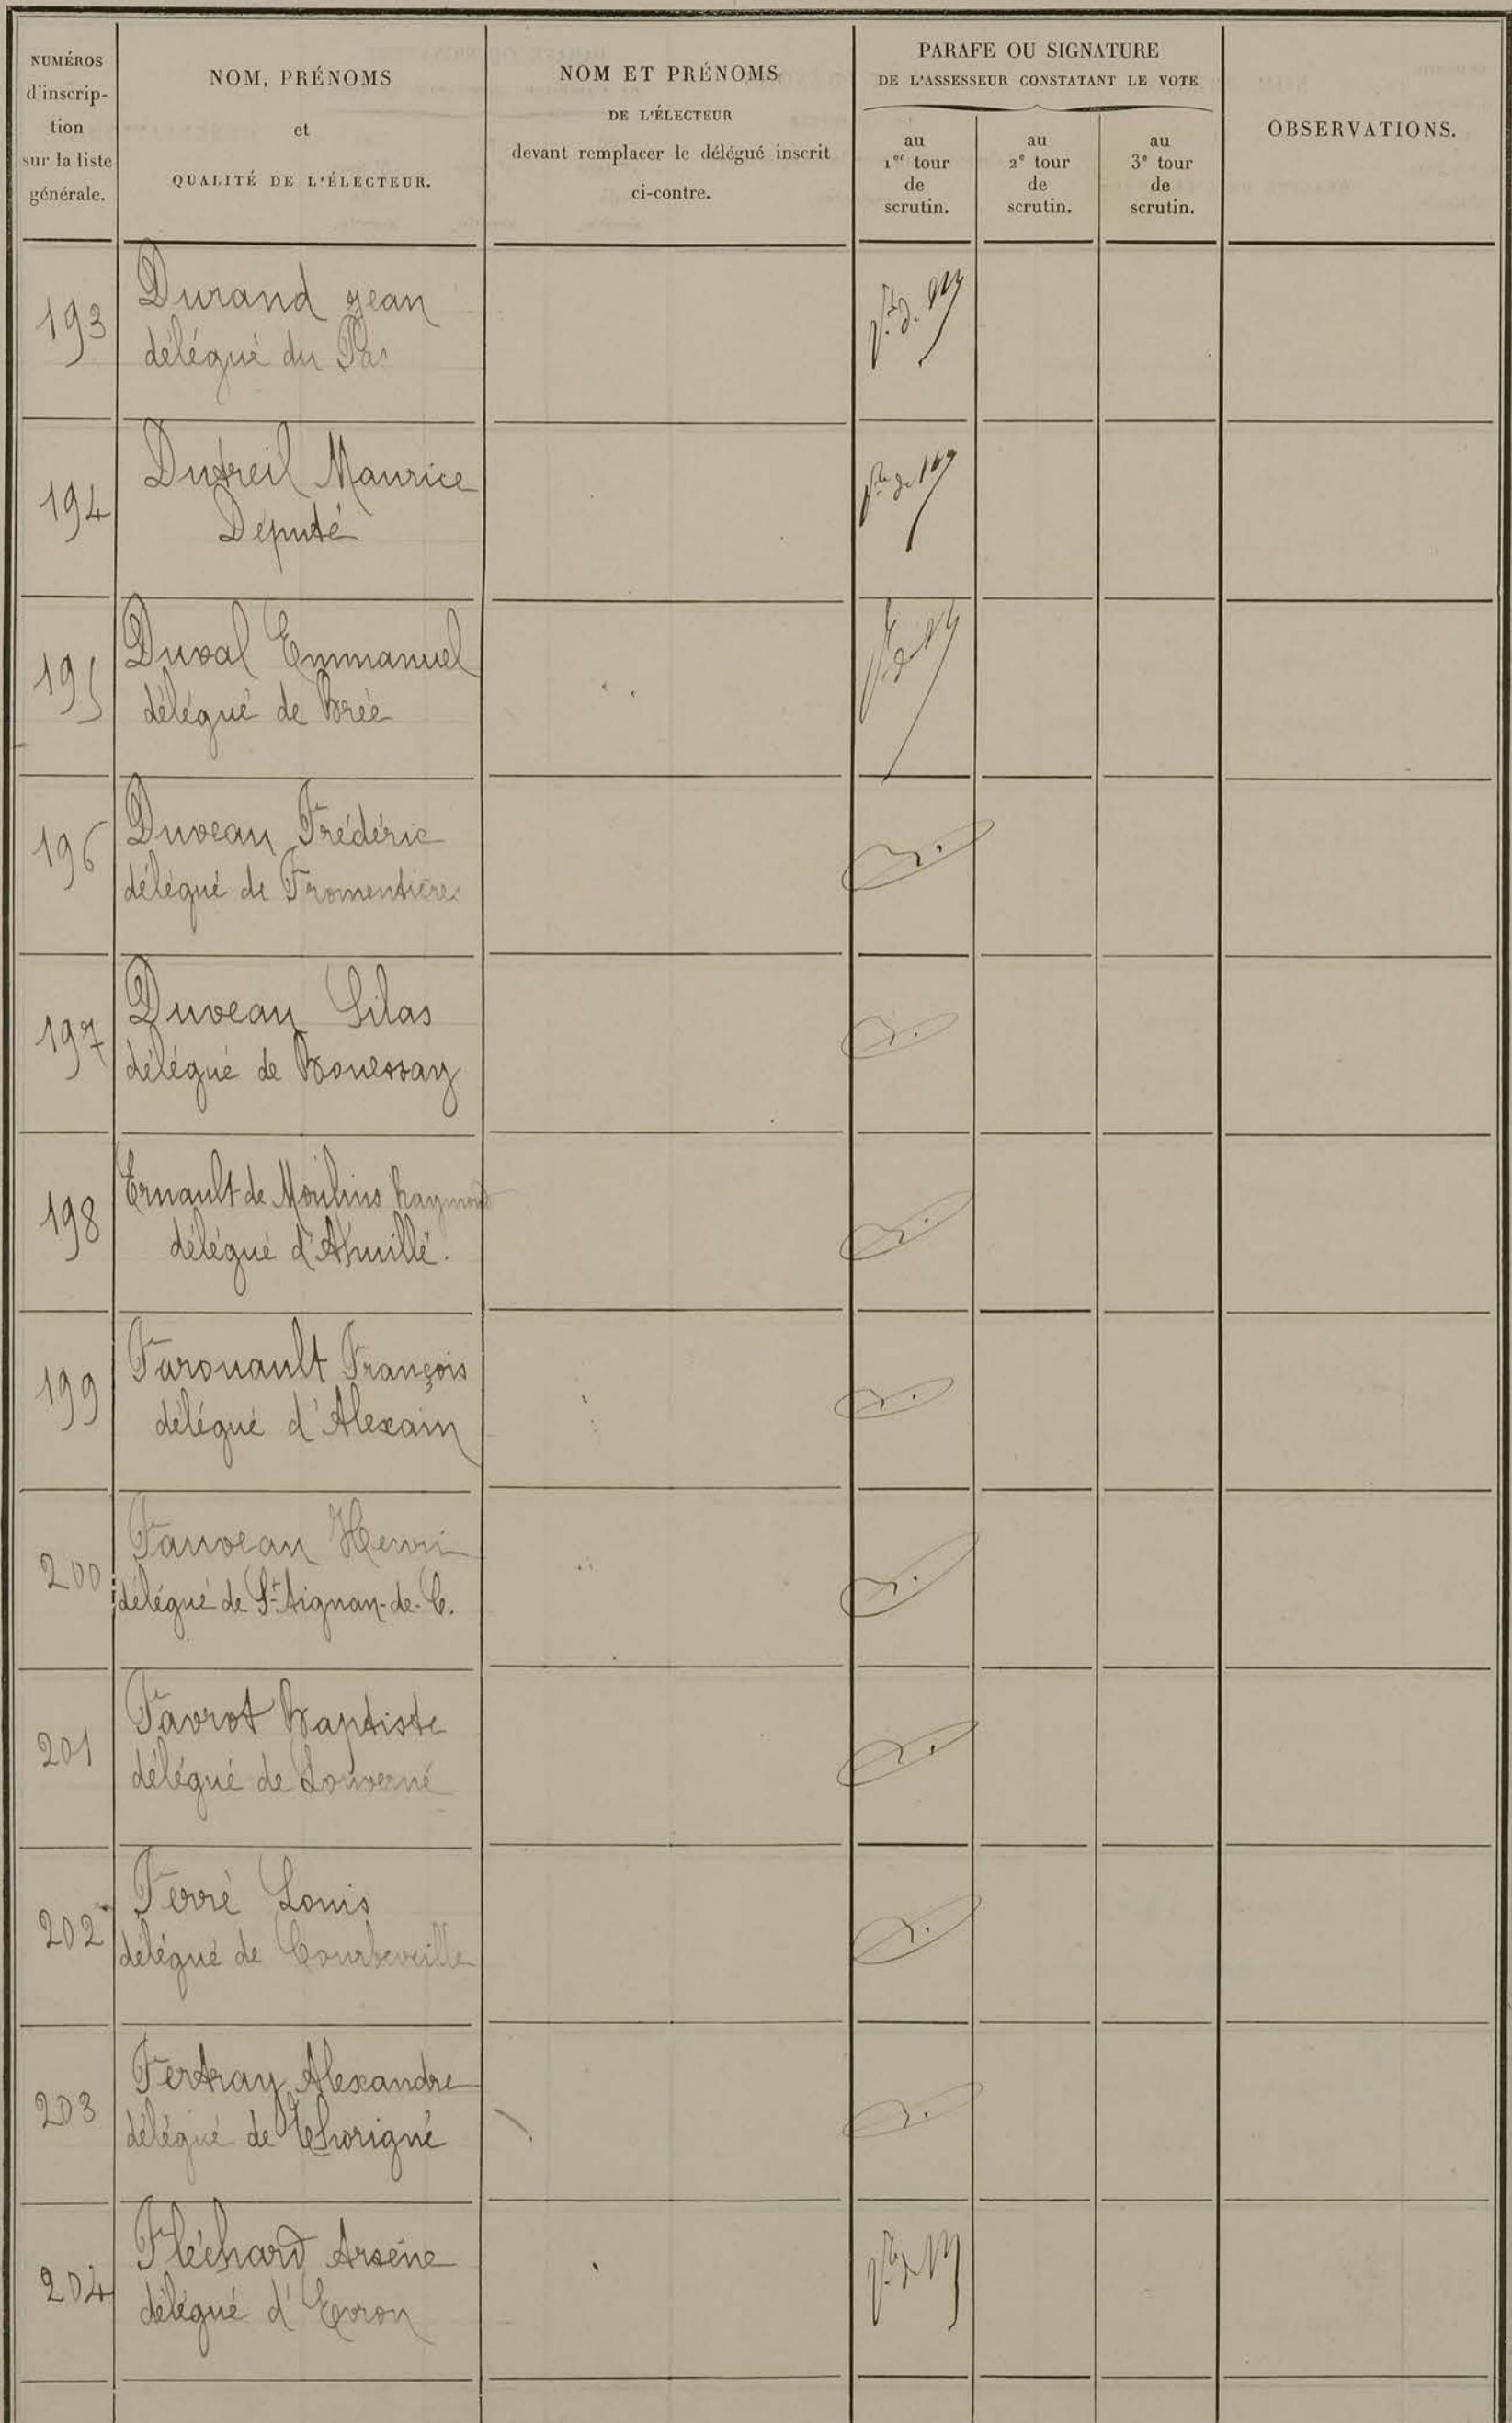 NUMÉROS
d'inscrip-
tion
sur la liste
générale.
NOM, PRÉNOMS
et
QUALITÉ DE L'ÉLECTEUR.
NOM ET PRÉNOMS
DE L'ÉLECTEUR
devant remplacer le délégué inscrit
ci-contre.
PARAFE OU SIGNATURE
DE L'ASSESSEUR CONSTATANT LE VOTE
au
1er tour
de
scrutin.
au
2e tour
de
scrutin.
au
3e tour
de
scrutin.
OBSERVATIONS.
193
Durand Jean
délégué du Pas
194
Dutreil Maurice
Député
195
Duval Emmanuel
délégué de Brée
196
Duveau Frédéric
délégué de Fromentières
197
Duveau Silas
délégué de Bouessay
198
Ernault de Moulins Raymond
délégué d'Ahuillé.
199
Farouault François
délégué d'Alexain
200
Fauveau Henri
délégué de St Aignan-de-C.
201
Favrot Baptiste
délégué de Louverné
202
Ferré Louis
délégué de Courbeveille
203
Fertray Alexandre
délégué de Thorigné
204
Fléchard Arsène
délégué d'Evron